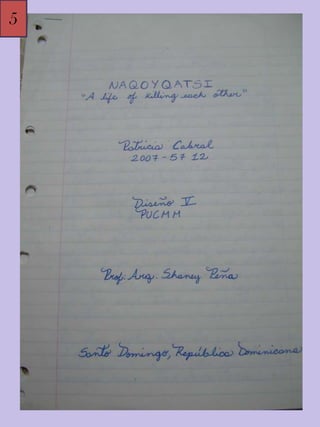 5
NAQOYQATSI
"A life of killing each other"
Patricia Cabral
2007-5712
Diseño V
PUCMM
Prof. Arq. Shaney Peña
Santo Domingo, República Dominicana